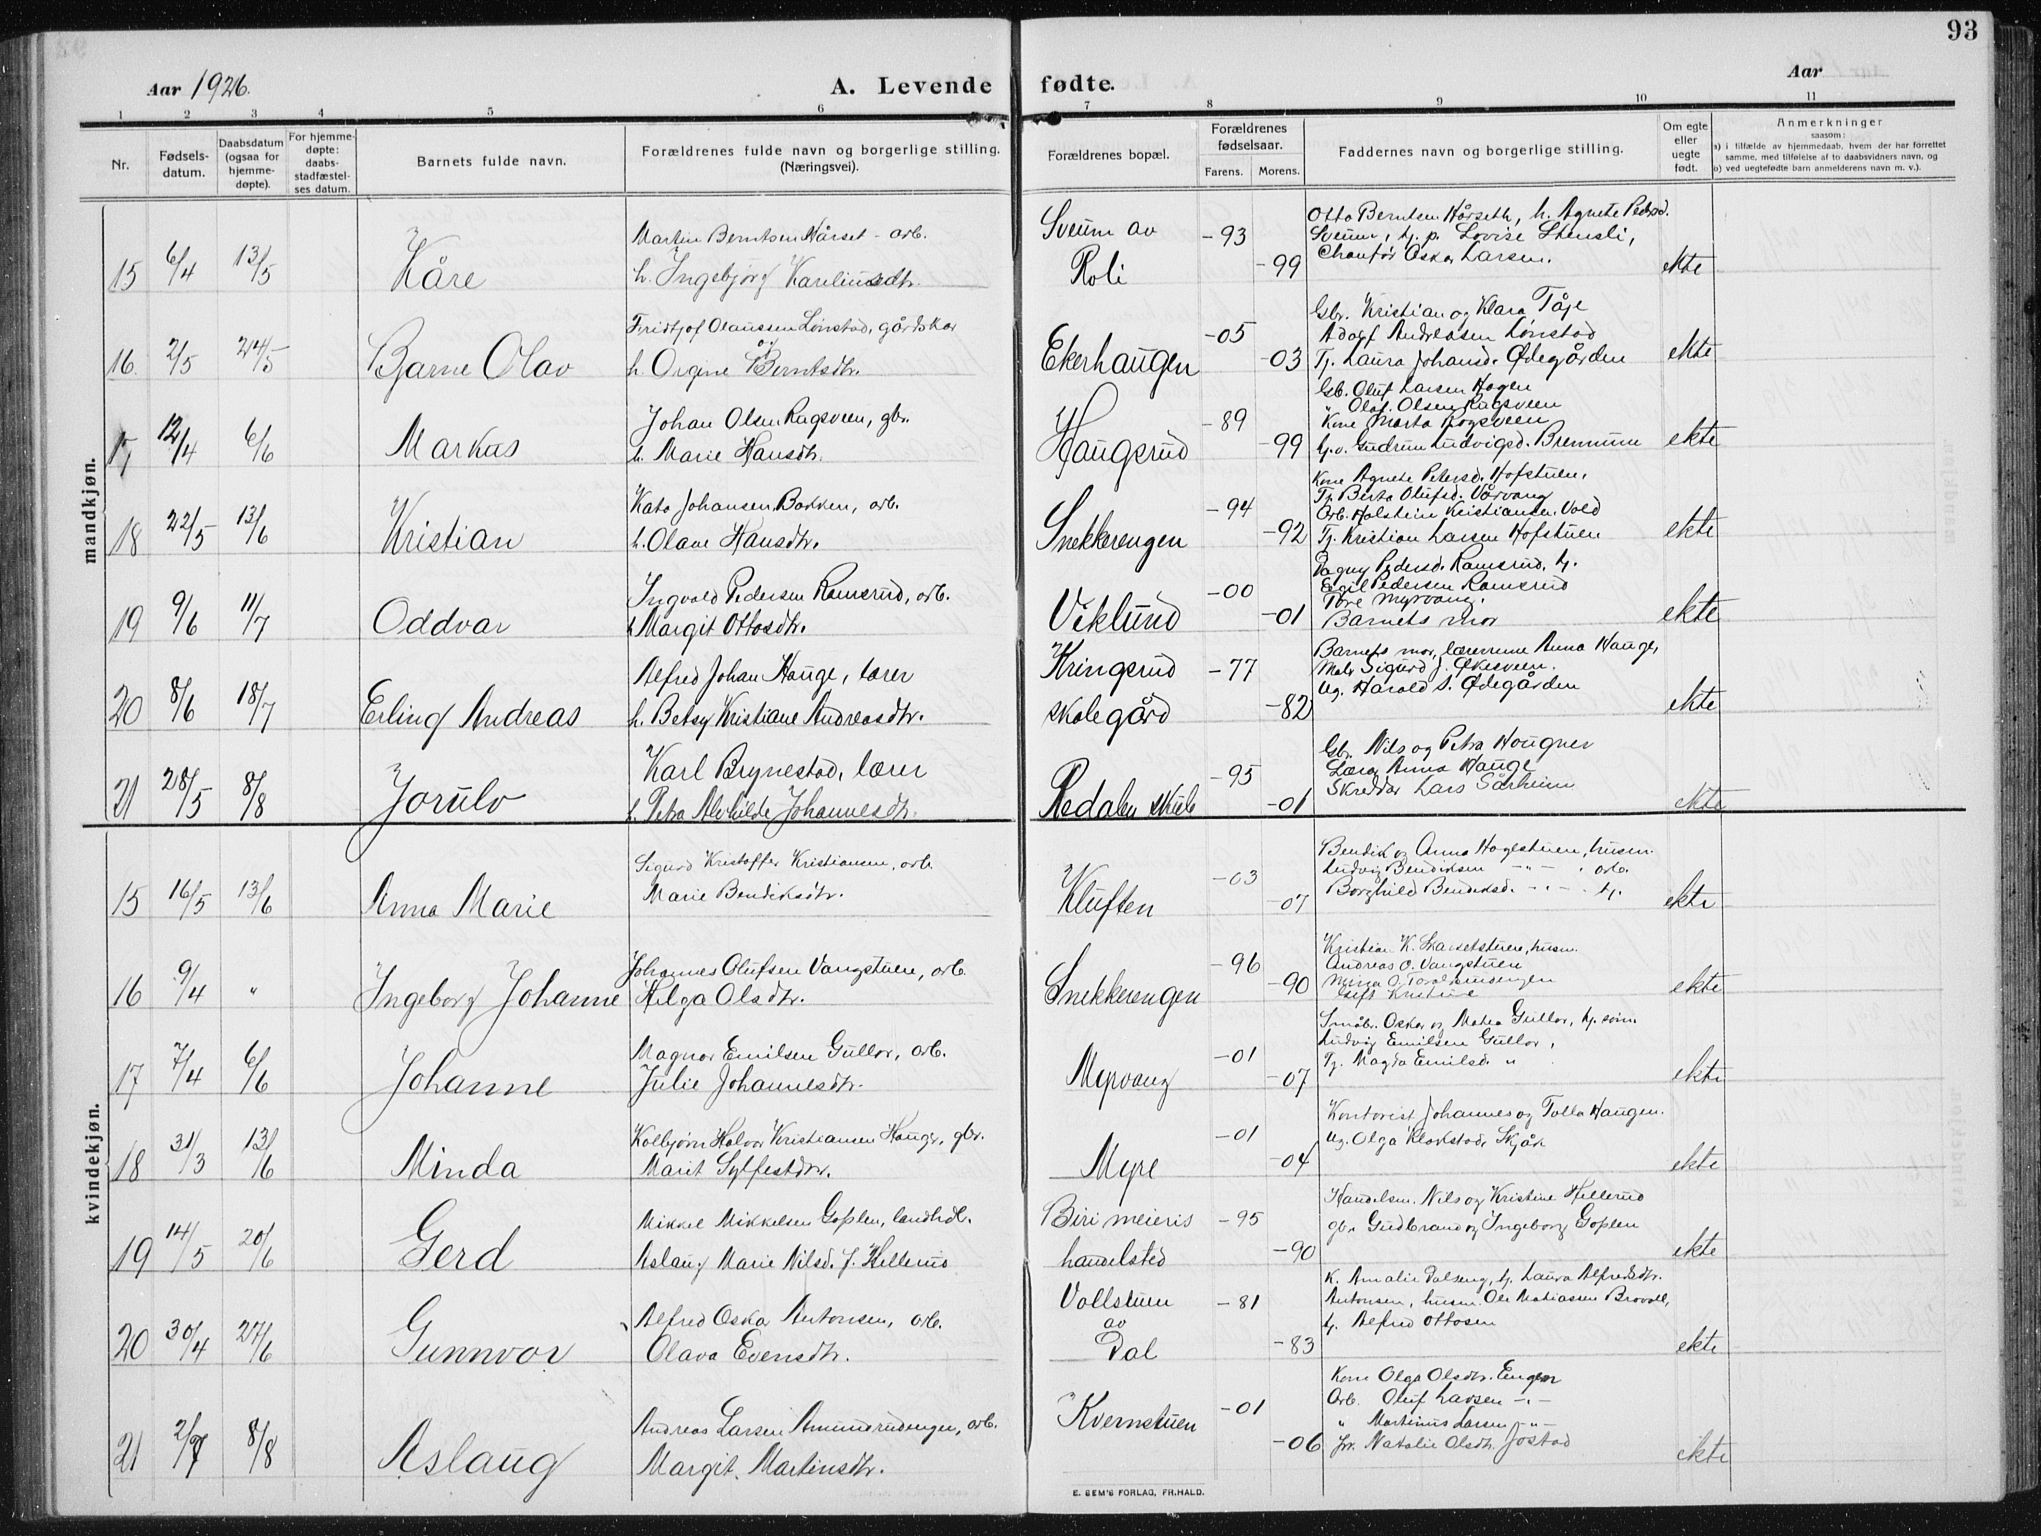 93
Aar 1926.
A. Levende fødte.
Aar
1 2 3 4 5 6 7 8 9 10 11
Nr.
Fødsels-
datum.
Daabsdatum
(ogsaa for
hjemme-
døpte).
For hjemme-
døpte:
daabs-
stadfæstel-
ses datum.
Barnets fulde navn.
Forældrenes fulde navn og borgerlige stilling.
(Næringsvei).
Forældrenes bopæl.
Forældrenes
fødselsaar.
Farens. Morens.
Faddernes navn og borgerlige stilling.
Om egte
eller
uegte
født.
Anmerkninger
saasom:
a) i tilfælde av hjemmedaab, hvem der har forrettet
samme, med tilføielse af to daabsvidners navn, og
b) ved uegtefødte barn anmelderens navn m. v.).
mandkjøn.
15 6/4 13/5 Kåre
Martin Berntsen Hårset - arb.
h. Ingebjørg Karelinusdtr.
Sveum av
Roli
-93 -99
Otto Berntsen Hårseth, h. Agnete Pedersd.
Sveum, tj. p. Lovise Stensli,
Chaufør Oskar Larsen.
ekte
16. 2/5 24/5 Bjarne Olav
Fridtjof Olaussen Lønstad, gårdskar
og
h. Orgine Berntsdtr.
Ekerhaugen
-05 -03
Gbr. Kristian og Klara Tåje
Adolf Andreasen Lønstad
Tj. Laura Johansd. Ødegården
ekte
17 12/4 6/6 Markus
Johan Olsen Rugsveen, gbr.
h. Marie Hansdtr.
Haugsrud
-89 -99
Gb. Oluf Larsen Hagen
" Olaf Olsen Rugsveen
Kone Marta Rogsveen
Gudrun Ludvigsd. Brennum
ekte
18 22/5 13/6 Kristian
Kato Johansen Bakken, arb.
h. Olave Hansdtr.
Snekkerengen
-94 -92
Kone Agnete Petersd. Hofstuen,
Tj. Berta Olufsd. Vårvang
Arb. Holstein Kristiansen Vold
Tj. Kristian Larsen Hofstuen
ekte
19 9/6 11/7 Oddvar
Ingvald Pedersen Ramsrud, arb.
h. Margit Ottosdtr.
Viklund
-00 -01
Dagny Pedersd. Ramsrud, tj.
Egil Pedersen Ramsrud
Tore Myrvang.
Barnets mor
ekte
20 8/6 18/7 Erling Andreas
Alfred Johan Hauge, lærer
h. Betsy Kristiane Andreasdtr.
Kringsrud
skolegård
-77 -82
Barnets mor, lærerinne Anna Hauge,
Maler Sigurd J. Økesveen.
Ug. Harald S. Ødegården
ekte
21 28/5 8/8 Jorulv
Karl Brynestad, lærer
h. Petra Alvhilde Johannesdtr.
Redalen skole
-95 -01
Gbr. Nils og Petra Haugner
Lærer Anna Hauge
Skredder Lars Sårheim
ekte
kvindekjøn.
15 16/5 13/6 Anna Marie
Sigurd Kristoffer Kristiansen, arb.
Marie Bendiksdtr.
Kluften
-03 -07
Bendik og Anna Hagestuen, husm.
Ludvig Bendiksen - " - , arb.
Borghild Bendiksd. - " - tj.
ekte
16 9/4 " Ingeborg Johanne
Johannes Olufsen Vangstuen, arb.
Helga Olsdtr.
Snekkerengen
-96 -90
Kristian K. Skarsetstuen, husm.
Andreas O. Vangstuen
ekte
17 7/4 6/6 Johanne
Magnar Emilsen Gullor, arb.
Julie Johannesdtr.
Myrvang
-01 -07
Småbr. Oskar og Mathea Gullor, tj. søm.
Ludvig Emilsen Gullor,
Tj. Magda Emilsd. "
ekte
18 31/3 13/6 Minda
Kolbjørn Halvor Kristiansen Hauger, gbr.
Marit Sylfestdtr.
Myre
-01 -04
Kontorist Johannes og Tolla Haugen.
Ug. Olga Klokstad, Skjåk
ekte
19 14/5 20/6 Gerd
Mikkel Mikkelsen Goplen, landhdl.
Aslaug Marie Nilsd. f. Hellerud
Biri meieris
handelsted
-95 -90
Handelsm. Nils og Kristine Hellerud
gbr. Gudbrand og Ingeborg Goplen
ekte
20 30/4 27/6 Gunnvor
Alfred Oskar Antonsen, arb.
Olava Evensdtr.
Vollstuen
av
Dal
-81 -83
K. Amalie Dalseng, tj. Laura Alfredsdtr.
Antonsen, husm. Ole Matiassen Brovoll,
tj. Alfred Ottosen
ekte
21 2/7 8/8 Aslaug
Andreas Larsen Amundrudengen, arb.
Margit Martinsdtr.
Kvernstuen
-01 -06
Kone Olga Olsdtr. Engen
Arb. Oluf Larsen - " -
" Martinus Larsen - " -
Frk. Natalie Olsdtr. Jostad
ekte
E. SEM'S FORLAG, FR.HALD.